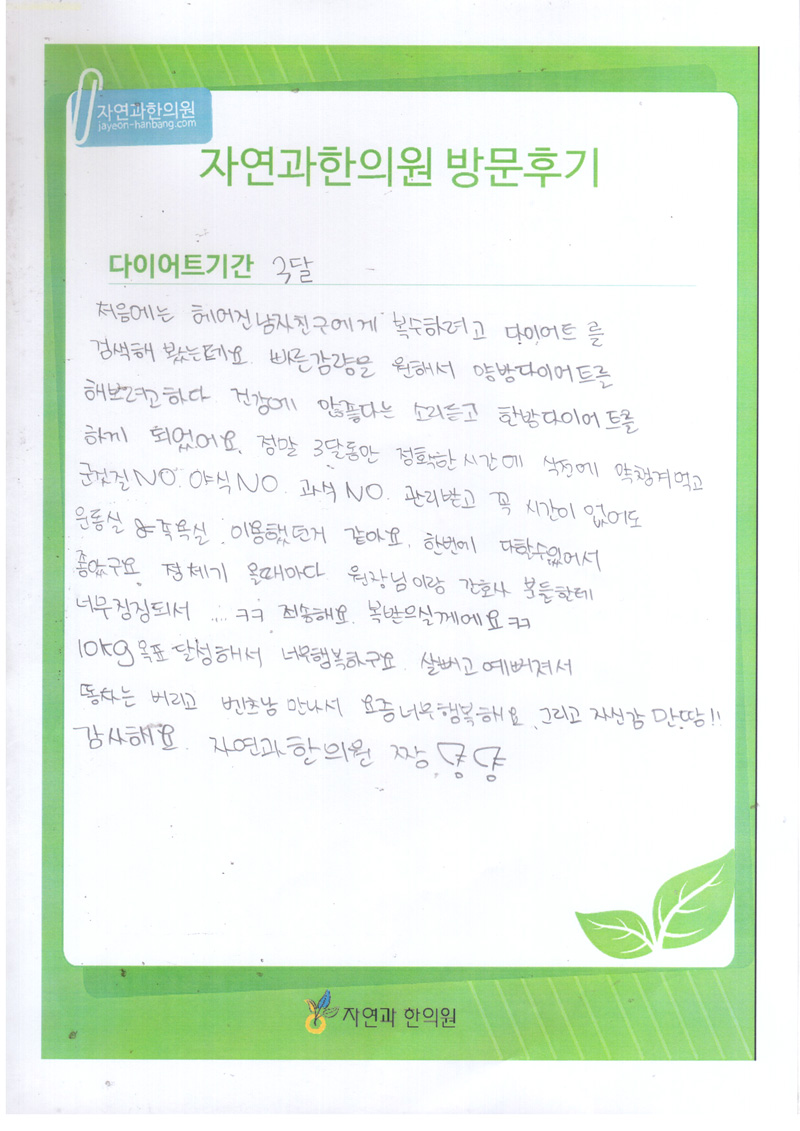 자연과한의원
jayeon-hanbang.com
자연과한의원 방문후기
다이어트기간 3달
처음에는 헤어진남자친구에게 복수하려고 다이어트를
검색해 봤는데요. 빠른감량을 원해서 양방다이어트를
해보려고하다 건강에 않좋다는 소리듣고 한방다이어트를
하게 되었어요. 정말 3달동안 정확한시간에 식전에 약챙겨먹고
군것질NO. 야식NO. 과식NO. 관리받고 꼭 시간이 없어도
운동실 & 족욕실 이용했던거 같아요. 한번에 다할수있어서
좋았구요. 정체기 올때마다 원장님이랑 간호사 분들한테
너무징징되서 .... ㅋㅋ 죄송해요. 복받으실꺼에요ㅋㅋ
10kg목표 달성해서 너무행복하구요. 살빼고 예뻐져서
똥차는 버리고 벤츠남 만나서 요즘너무행복해요. 그리고 자신감 만땅!!
감사해요. 자연과한의원 짱.
자연과 한의원